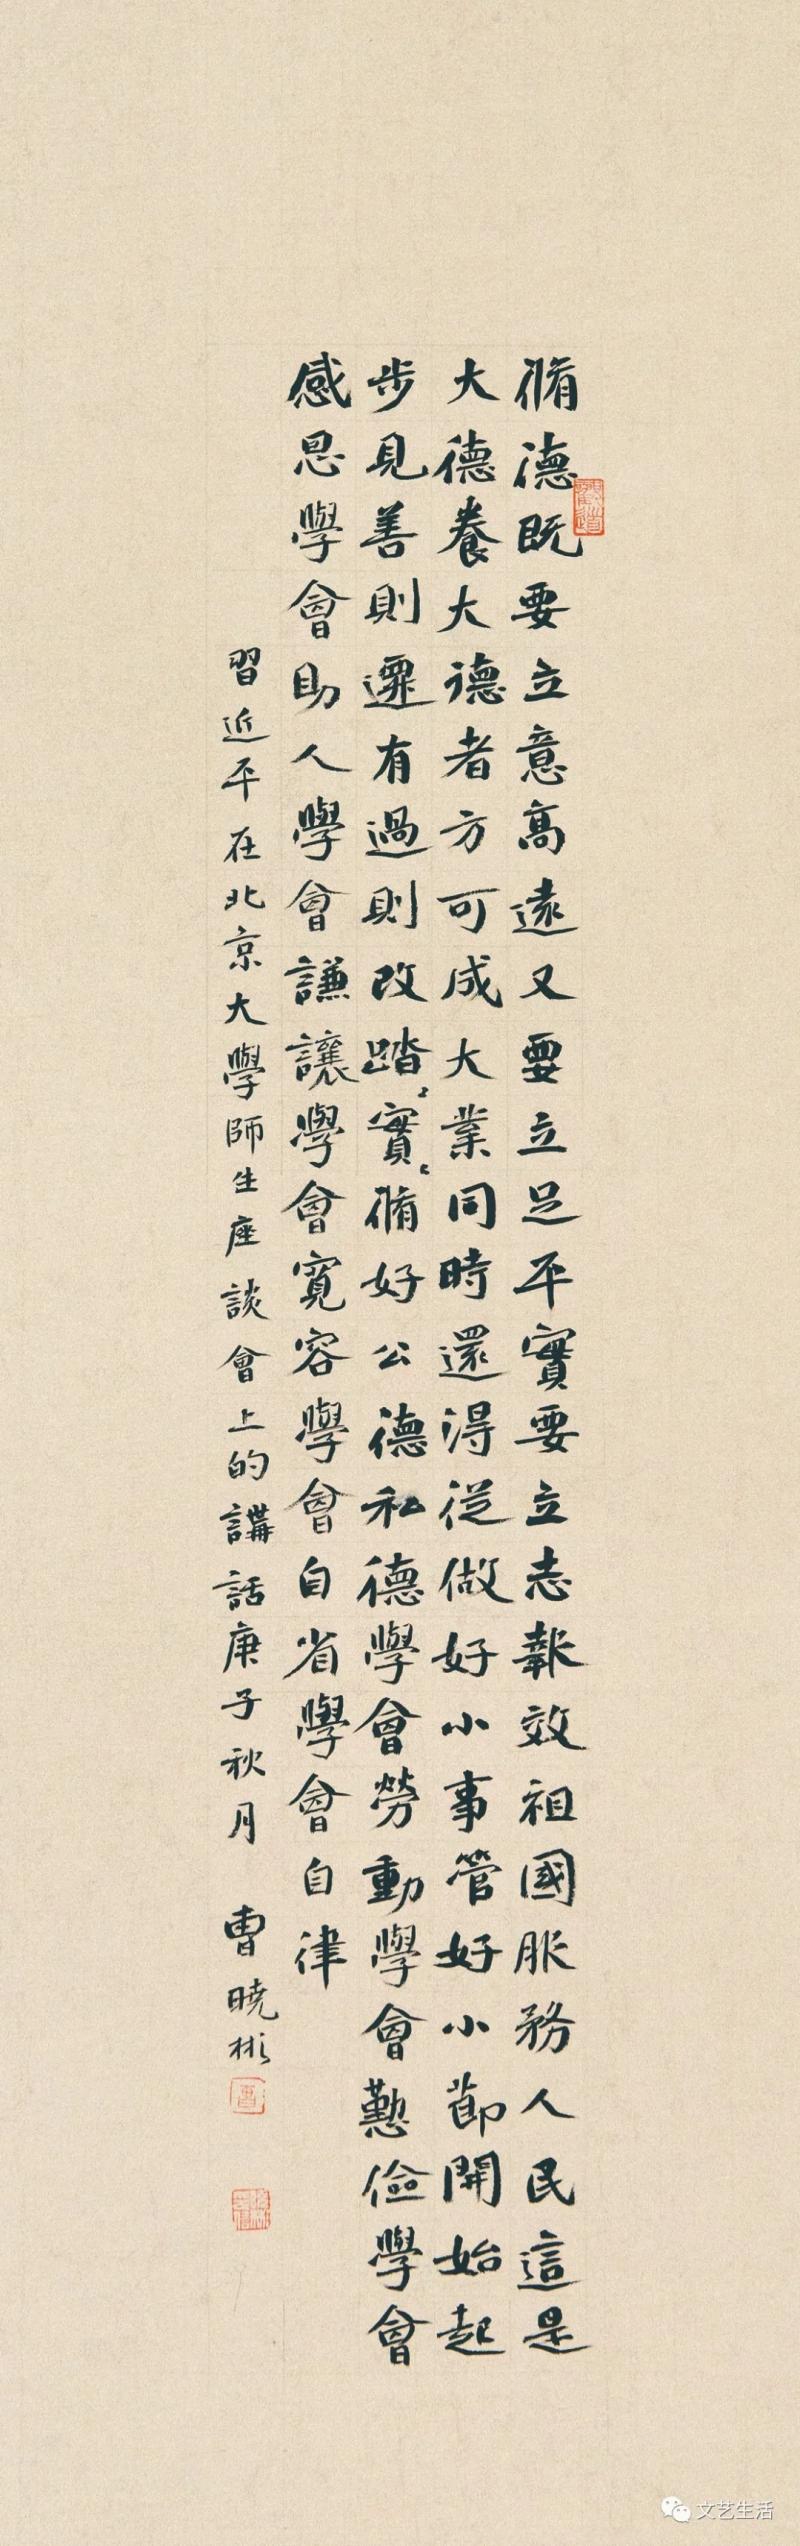 脩德既要立意高遠又要立足平實要立志報效祖國服務人民這是
大德養大德者方可成大業同時還得從做好小事管好小節開始起
步見善則遷有過則改踏〻實〻脩好公德私德學會勞動學會勤儉學會
感恩學會助人學會謙讓學會寬容學會自省學會自律
習近平在北京大學師生座談會上的講話庚子秋月 曹曉彬
文艺生活